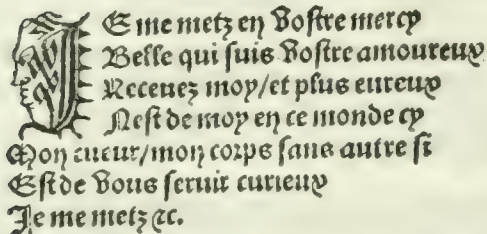 JE me metz en vostre mercy
Belle qui suis vostre amoureux
Recevez moy/et plus eureux
Nest de moy en ce monde cy
Mon cueur/mon corps sans autre si
Est de vous servir curieux
Je me metz ⁊c.